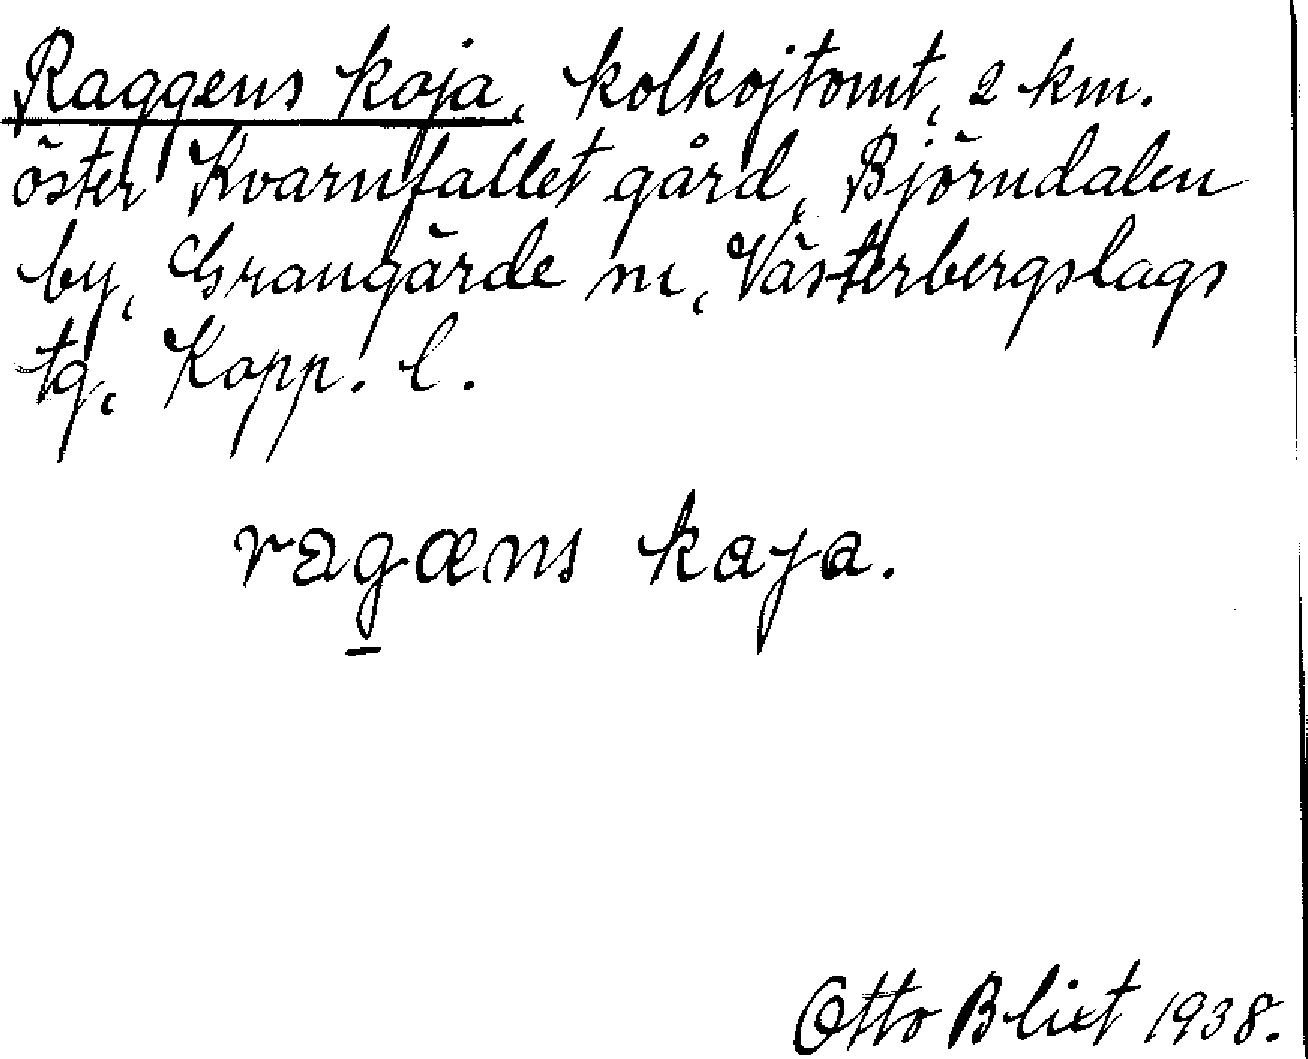 Raggens koja, kolkojtomt, 2 km.
öster Kvarnfallet gård, Björndalen
by, Grangärde sn, Västerbergslags
tg, Kopp. l.
ragæns kaja.
Otto Blixt 1938.